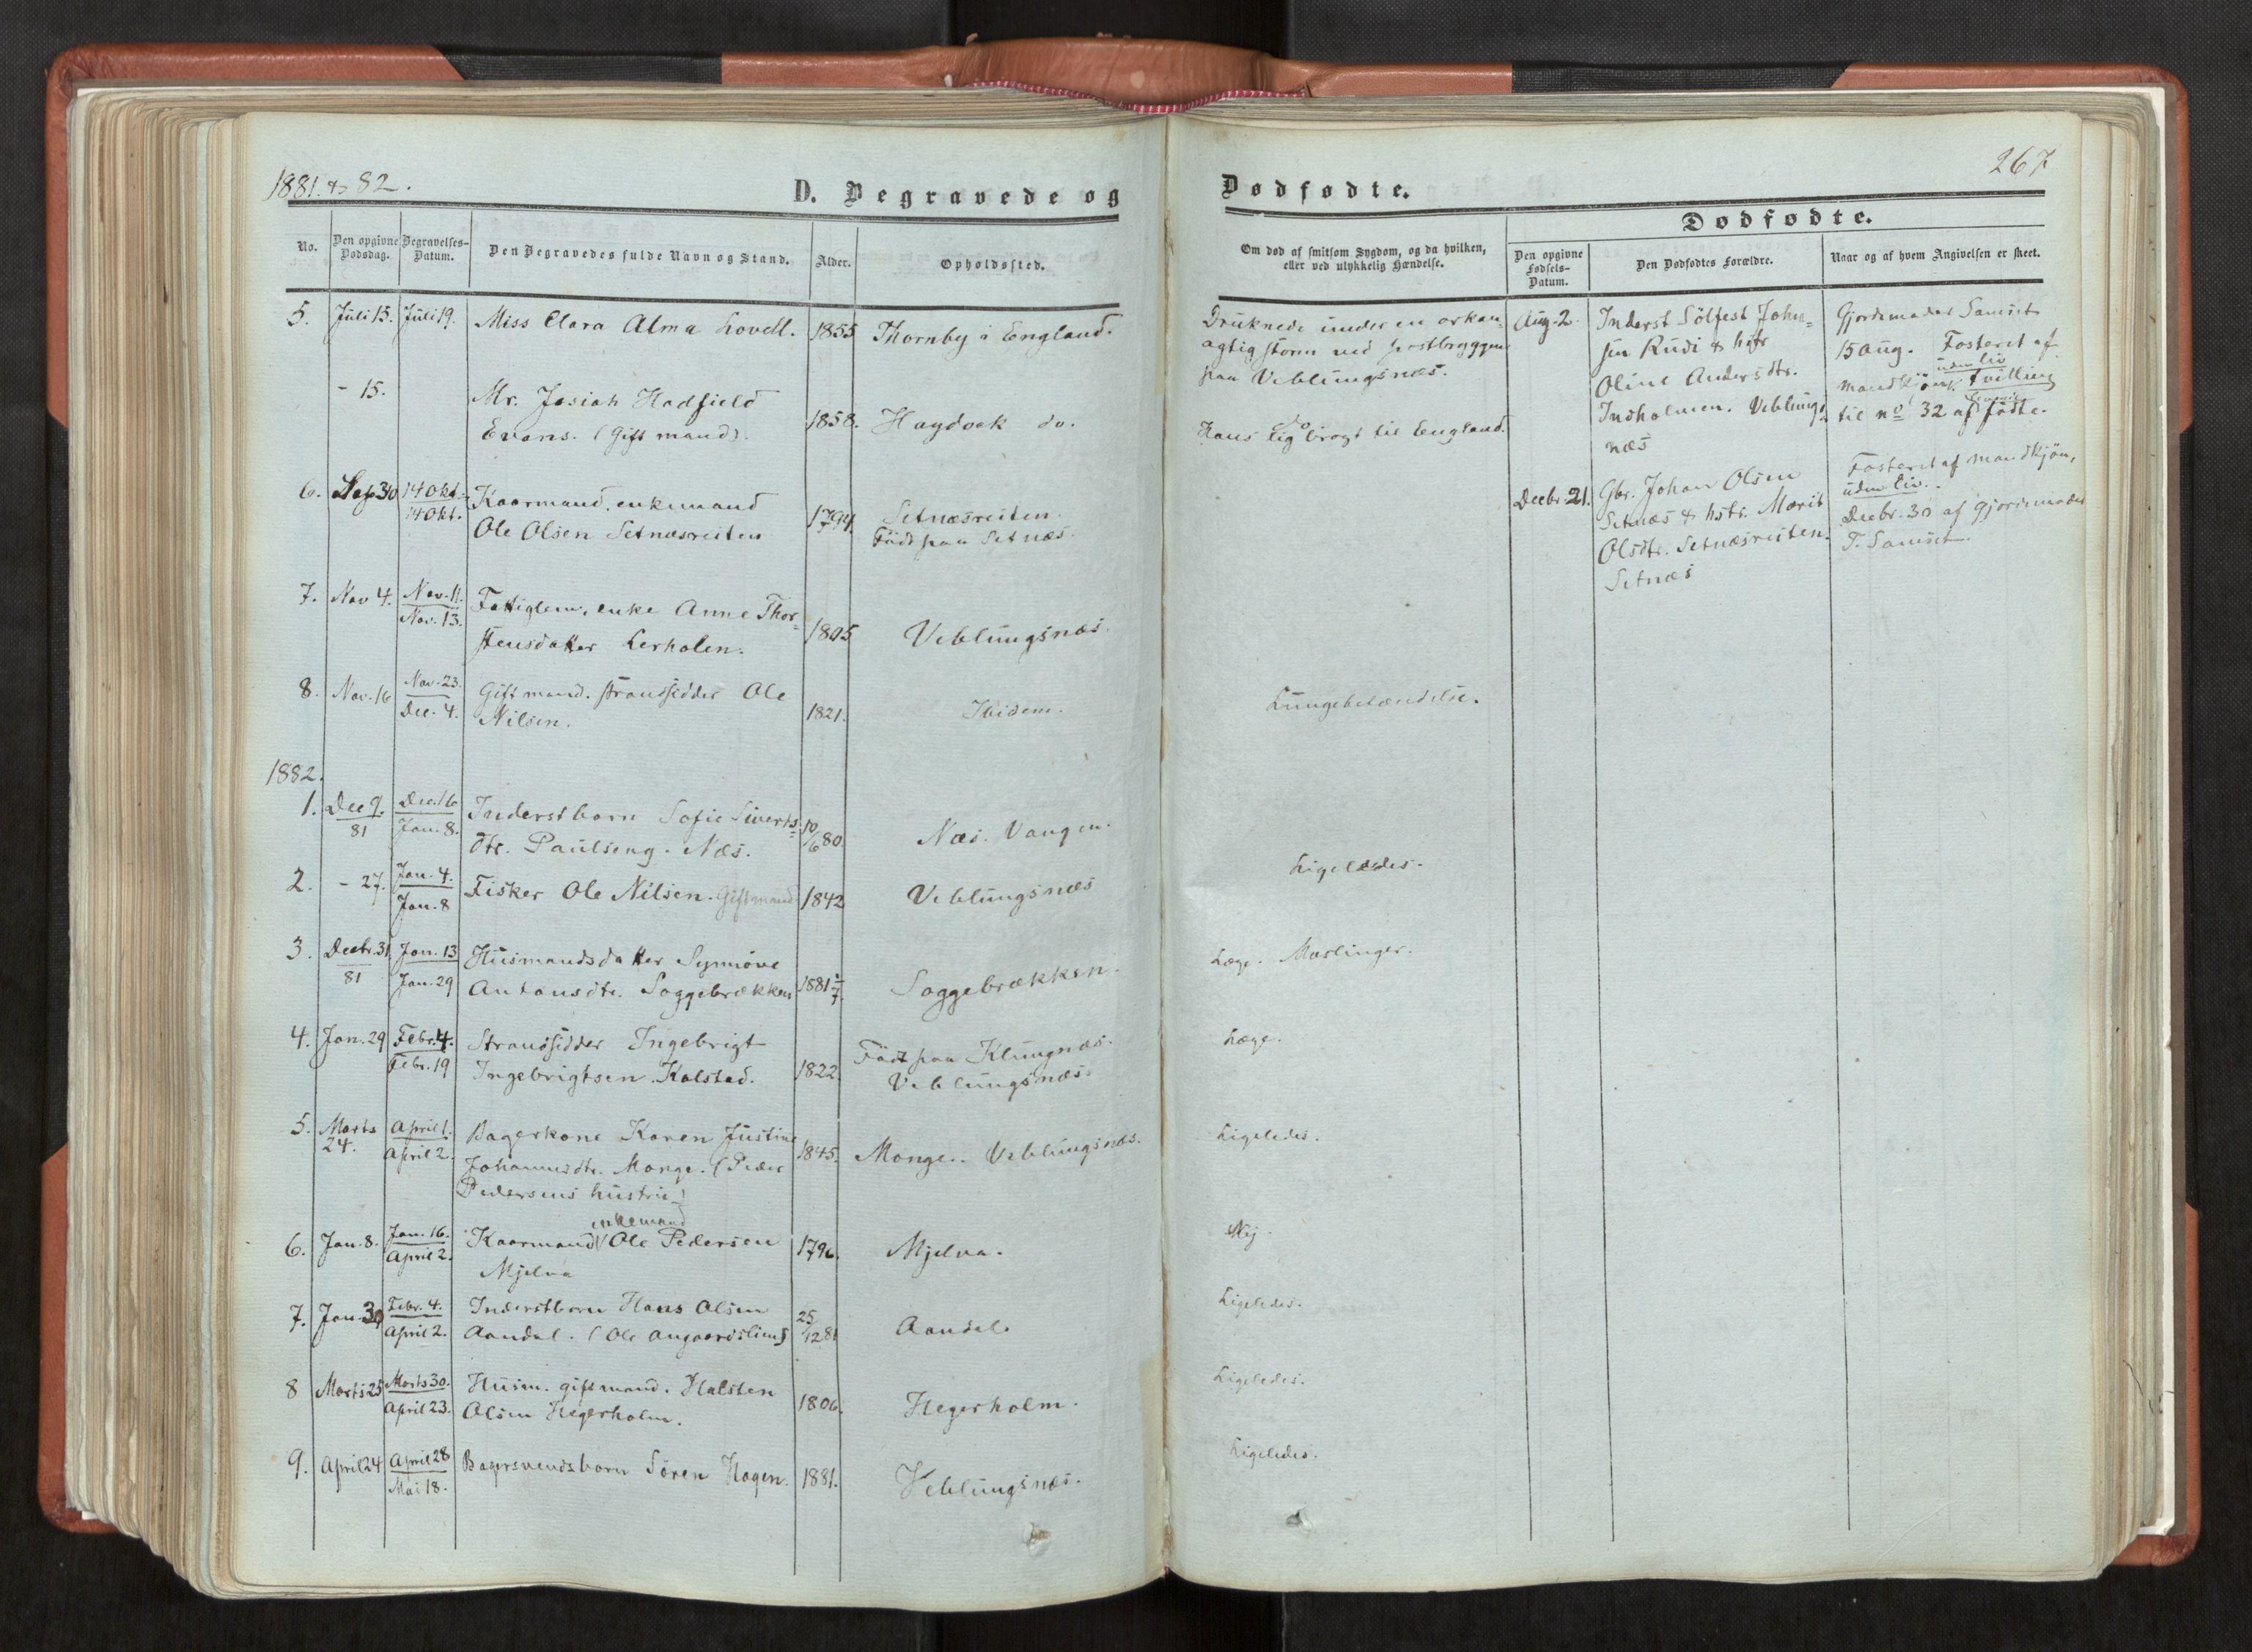 1881. & 82.
D. Begravede og
No.
Den opgivne Dødsdag.
Begravelses-Datum.
Den Begravedes fulde Navn og Stand.
Alder.
Opholdssted.
5. Juli 15. Juli 19. Miss Clara Alma Lovell. 1855 Thornby i England.
- 15. Mr. Josiah Hadfield
Evans. (Gift mand). 1858. Haydock do.
6. Sep 30 14 Okt. Kaarmand. enkemand
14 Okt. Ole Olsen Setnæsreiten 1794 Setnæsreiten.
Født paa Setnæs.
7. Nov 4. Nov. 11. Fattiglem, enke Anne Thor-
Nov. 13. stensdatter Lerholen. 1805 Veblungsnæs.
8. Nov. 16 Nov. 23. Gift mand. strandsidder Ole
Dec. 4. Nilsen. 1821. Ibidem.
1882.
1. Dec 9. Dec. 16 Inderstbarn Sofie Siverts-
81 Jan. 8. dtr. Paulseng. Næs. 10/6 80 Næs. Vangen.
2. - 27. Jan. 4. Fisker Ole Nilsen. Gift mand 1842 Veblungsnæs
Jan. 8
3. Decbr. 31 Jan. 13 Husmandsdatter Synnøve
81 Jan. 29 Antonsdtr. Soggebrækken 1881 1/7. Soggebrækken.
4. Jan. 29 Febr. 4. Strandsidder Ingebrigt
Febr. 19 Ingebrigtsen Kalstad. 1822. Født paa Klungnæs.
Veblungsnæs.
5. Marts April 1. Bagerkone Karen Justine
24. April 2. Johannesdtr. Monge. (Peder 1845. Monge. Veblungsnæs.
Pedersens hustru)
enkemand
6. Jan. 8. Jan. 16. Kaarmand Ole Pedersen 1796. Mjelva.
April 2. Mjelva
7. Jan. 30 Febr. 4. Inderstbarn Hans Olsen
April 2. Aandal. (Ole 25/12 81 Aandal.
8 Marts 25 Marts 30. Husm. gift mand. Halsten
April 23. Olsen Hegerholm. 1806. Hegerholm.
9. April 24 April 28 Bagersvendsbarn Søren Hagen. 1881. Veblungsnæs.
Mai 18.
267
Dødfødte.
Om død af smitsom Sygdom, og da hvilken,
eller ved ulykkelig Hændelse.
Dødfødte.
Den opgivne Fødsels-Datum.
Den Dødfødtes Forældre.
Naar og af hvem Angivelsen er skeet.
Druknede under en orkan-
agtig storm ved postbryggen
paa Veblungsnæs.
do
Hans lig bragt til England.
Lungebetændelse.
Ligeledes.
Læge. Mæslinger.
Læge.
Ligeledes.
Nej.
Ligeledes.
Ligeledes.
Ligeledes.
Aug. 2. Inderst Sølfest John-
sen Rudi & hstr
Oline Andersdtr.
Indholmen. Veblungs-
næs
Gjordemoder Samset
15 Aug. Fosteret af
uden liv
mandkjøn. tvilling
levende
til no 32 af fødte.
Decbr. 21. Gbr. Johan Olsen
Setnæs & hstr. Marit
Olsdtr. Setnæsreiten.
Setnæs
Fosteret af mandkjøn,
uden liv.
Decbr. 30 af gjordemoder
T. Samset.